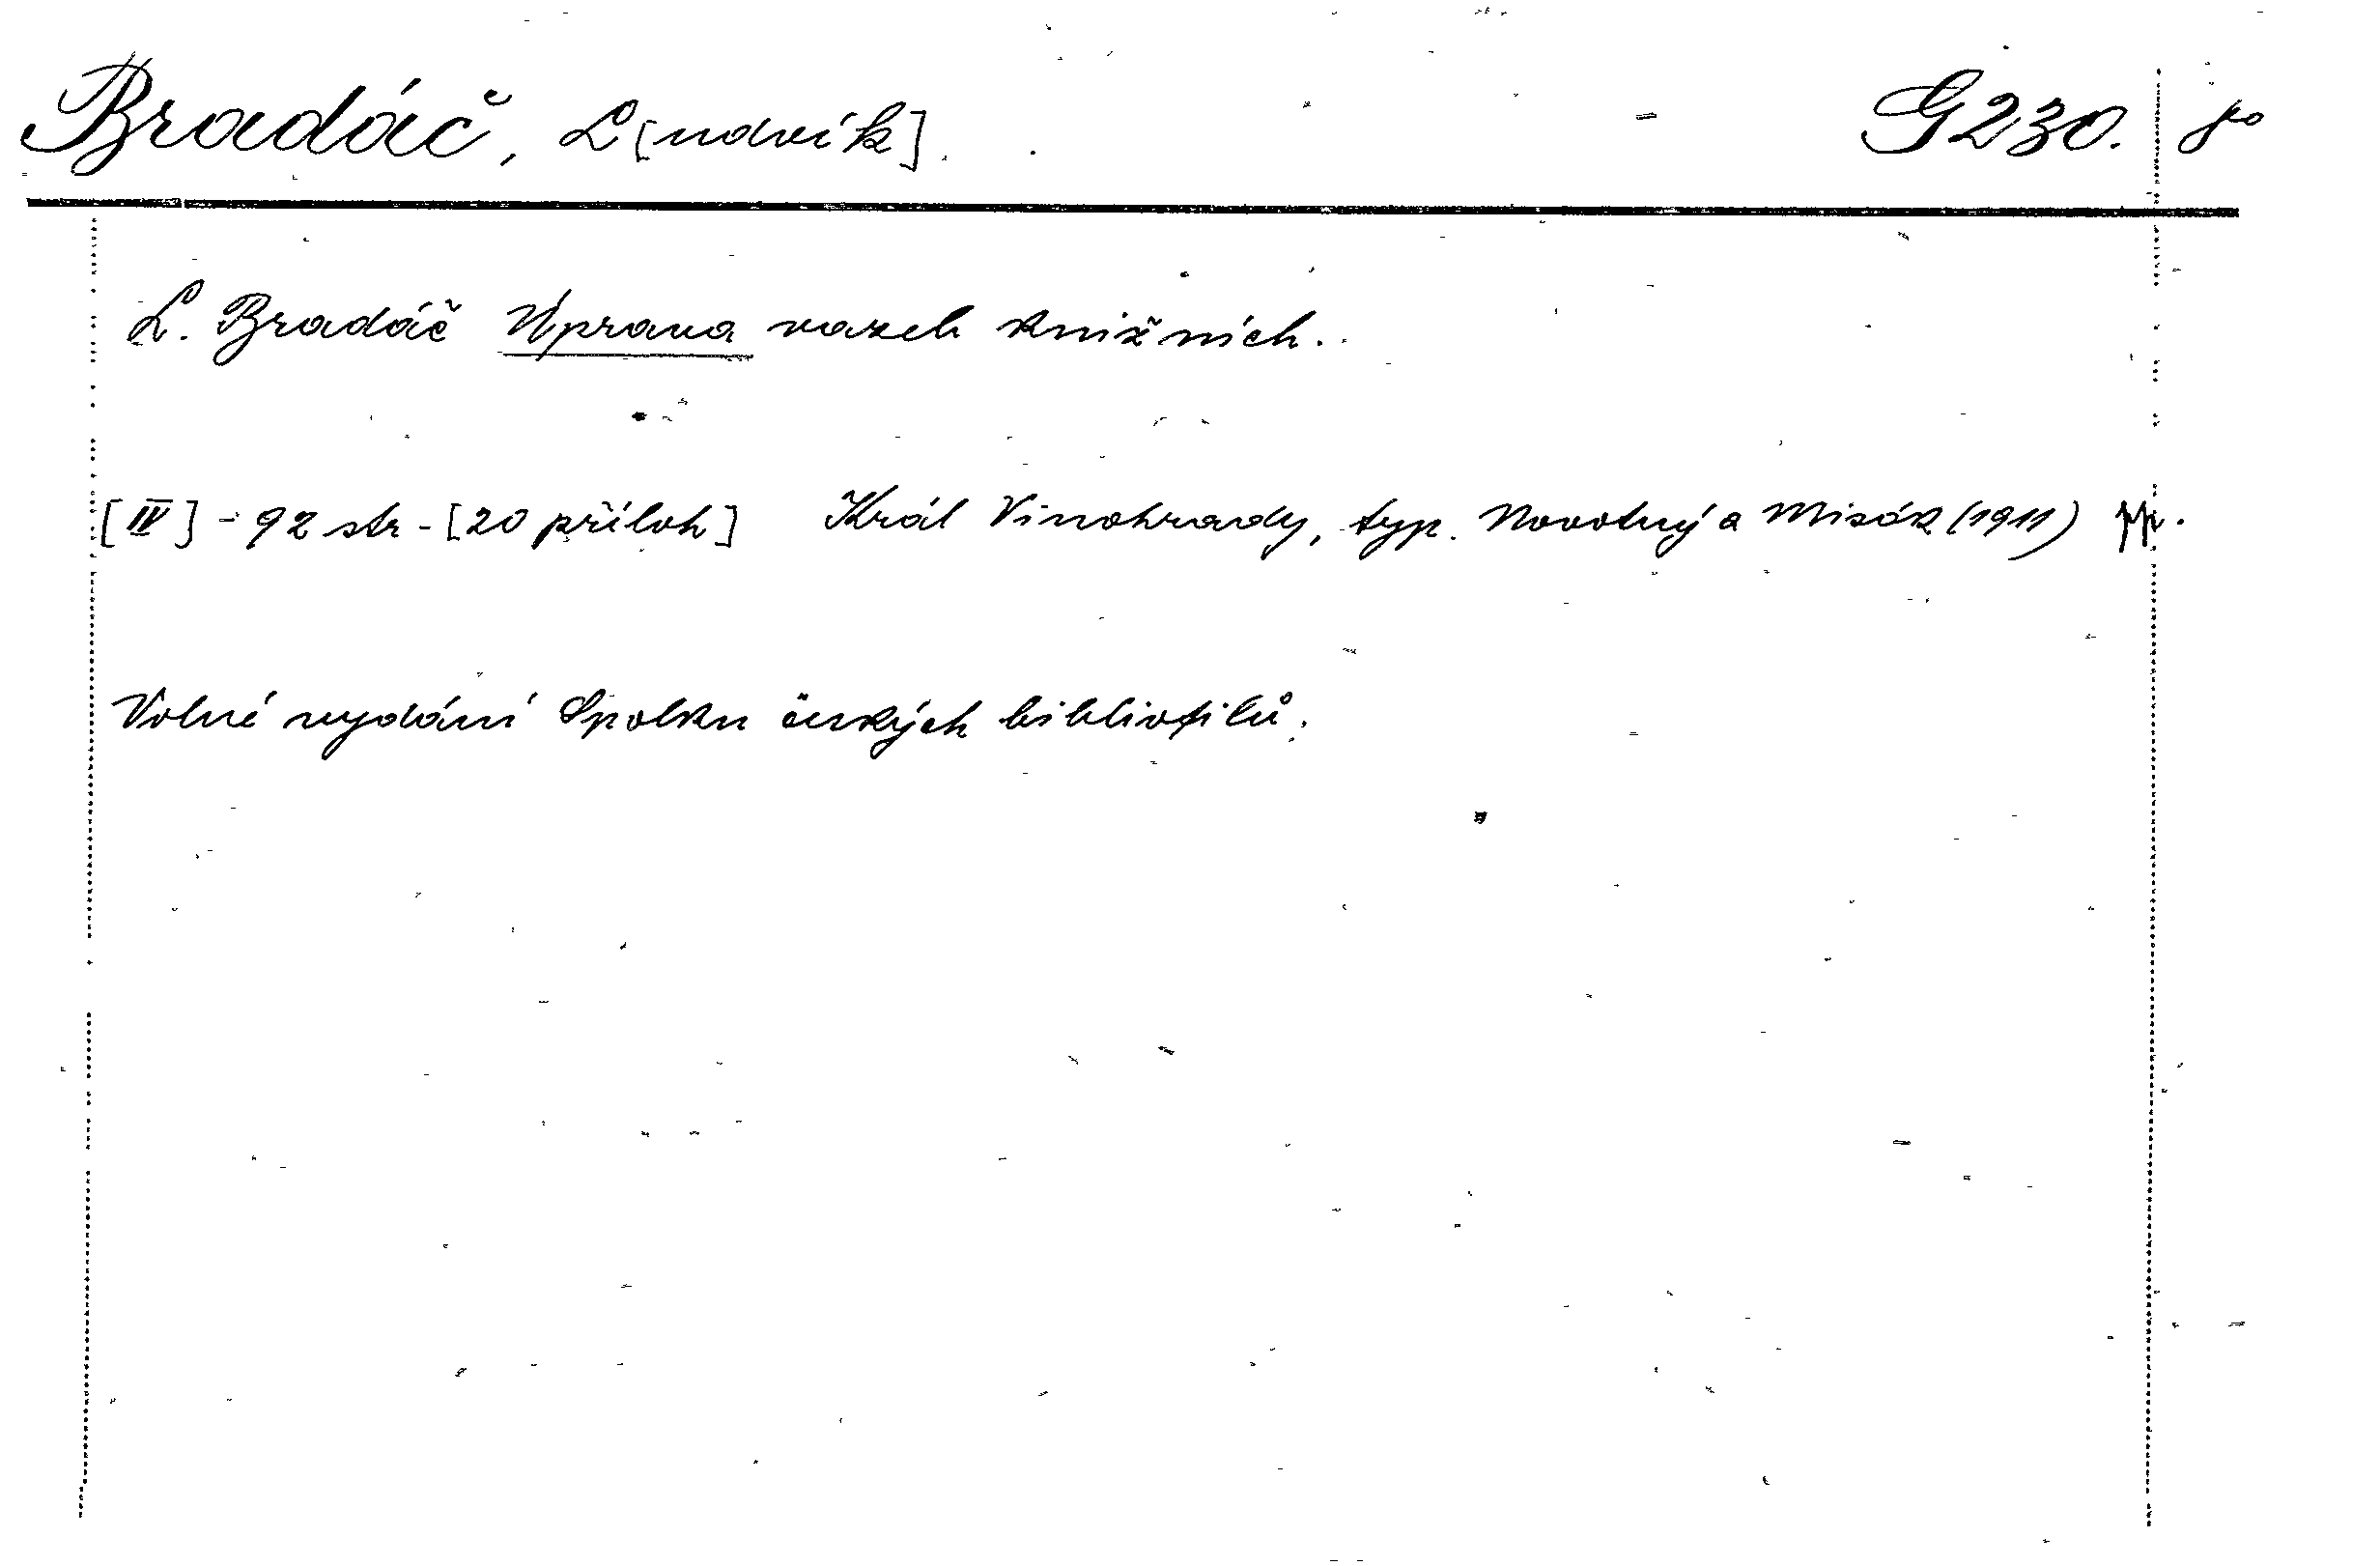 Bradáč, L[udvík]. G230. 8°
L. Bradáč Úprava vazeb knižních.
[IV] - 92 str - [20 příloh] Král Vinohrady, typ. Novotný a Misák (1911) pp.
Volné vydání Spolku českých bibliofilů.